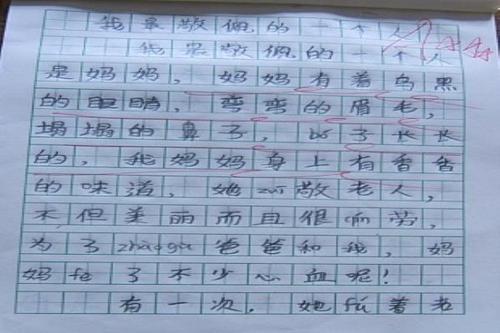 我最敬佩的一个人
我最敬佩的一个人
是妈妈，妈妈有着乌黑
的眼睛，弯弯的眉毛，
塌塌的鼻子，bó子长长
的，我妈妈身上有香香
的味道，她zūn敬老人，
不但美丽而且很 劳，
为了zhàogù爸爸和我，妈
妈fe了不少心血呢！
有一次，她fú着老